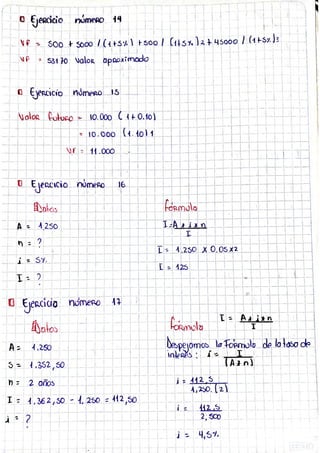 Ejercicio número 14
VF = 500 + 5000 / (1+5%) + 500 / (1+5%)2 + 45000 / (1+5%)3
VF = 53170 Valor aproximado
Ejercicio número 15
Valor futuro = 10.000 (1+0.10)
= 10.000 (1.10)1
VF = 11.000
Ejercicio número 16
Datos
Fórmula
A = 1,250
I = A x i x n
I
n = ?
I = 1.250 x 0,05 x 2
i = 5%
I = 125
I = ?
Ejercicio número 17
Datos
Fórmula
I = A x i x n
I
A = 1.250
Despejamos la Fórmula de la tasa de
S = 1.362,50
interés : i = I
(A x n)
n = 2 años
i = 112,5
1,250.(2)
I = 1.362,50 - 1.250 = 112,50
i = 112,5
2,500
i = ?
i = 4,5%